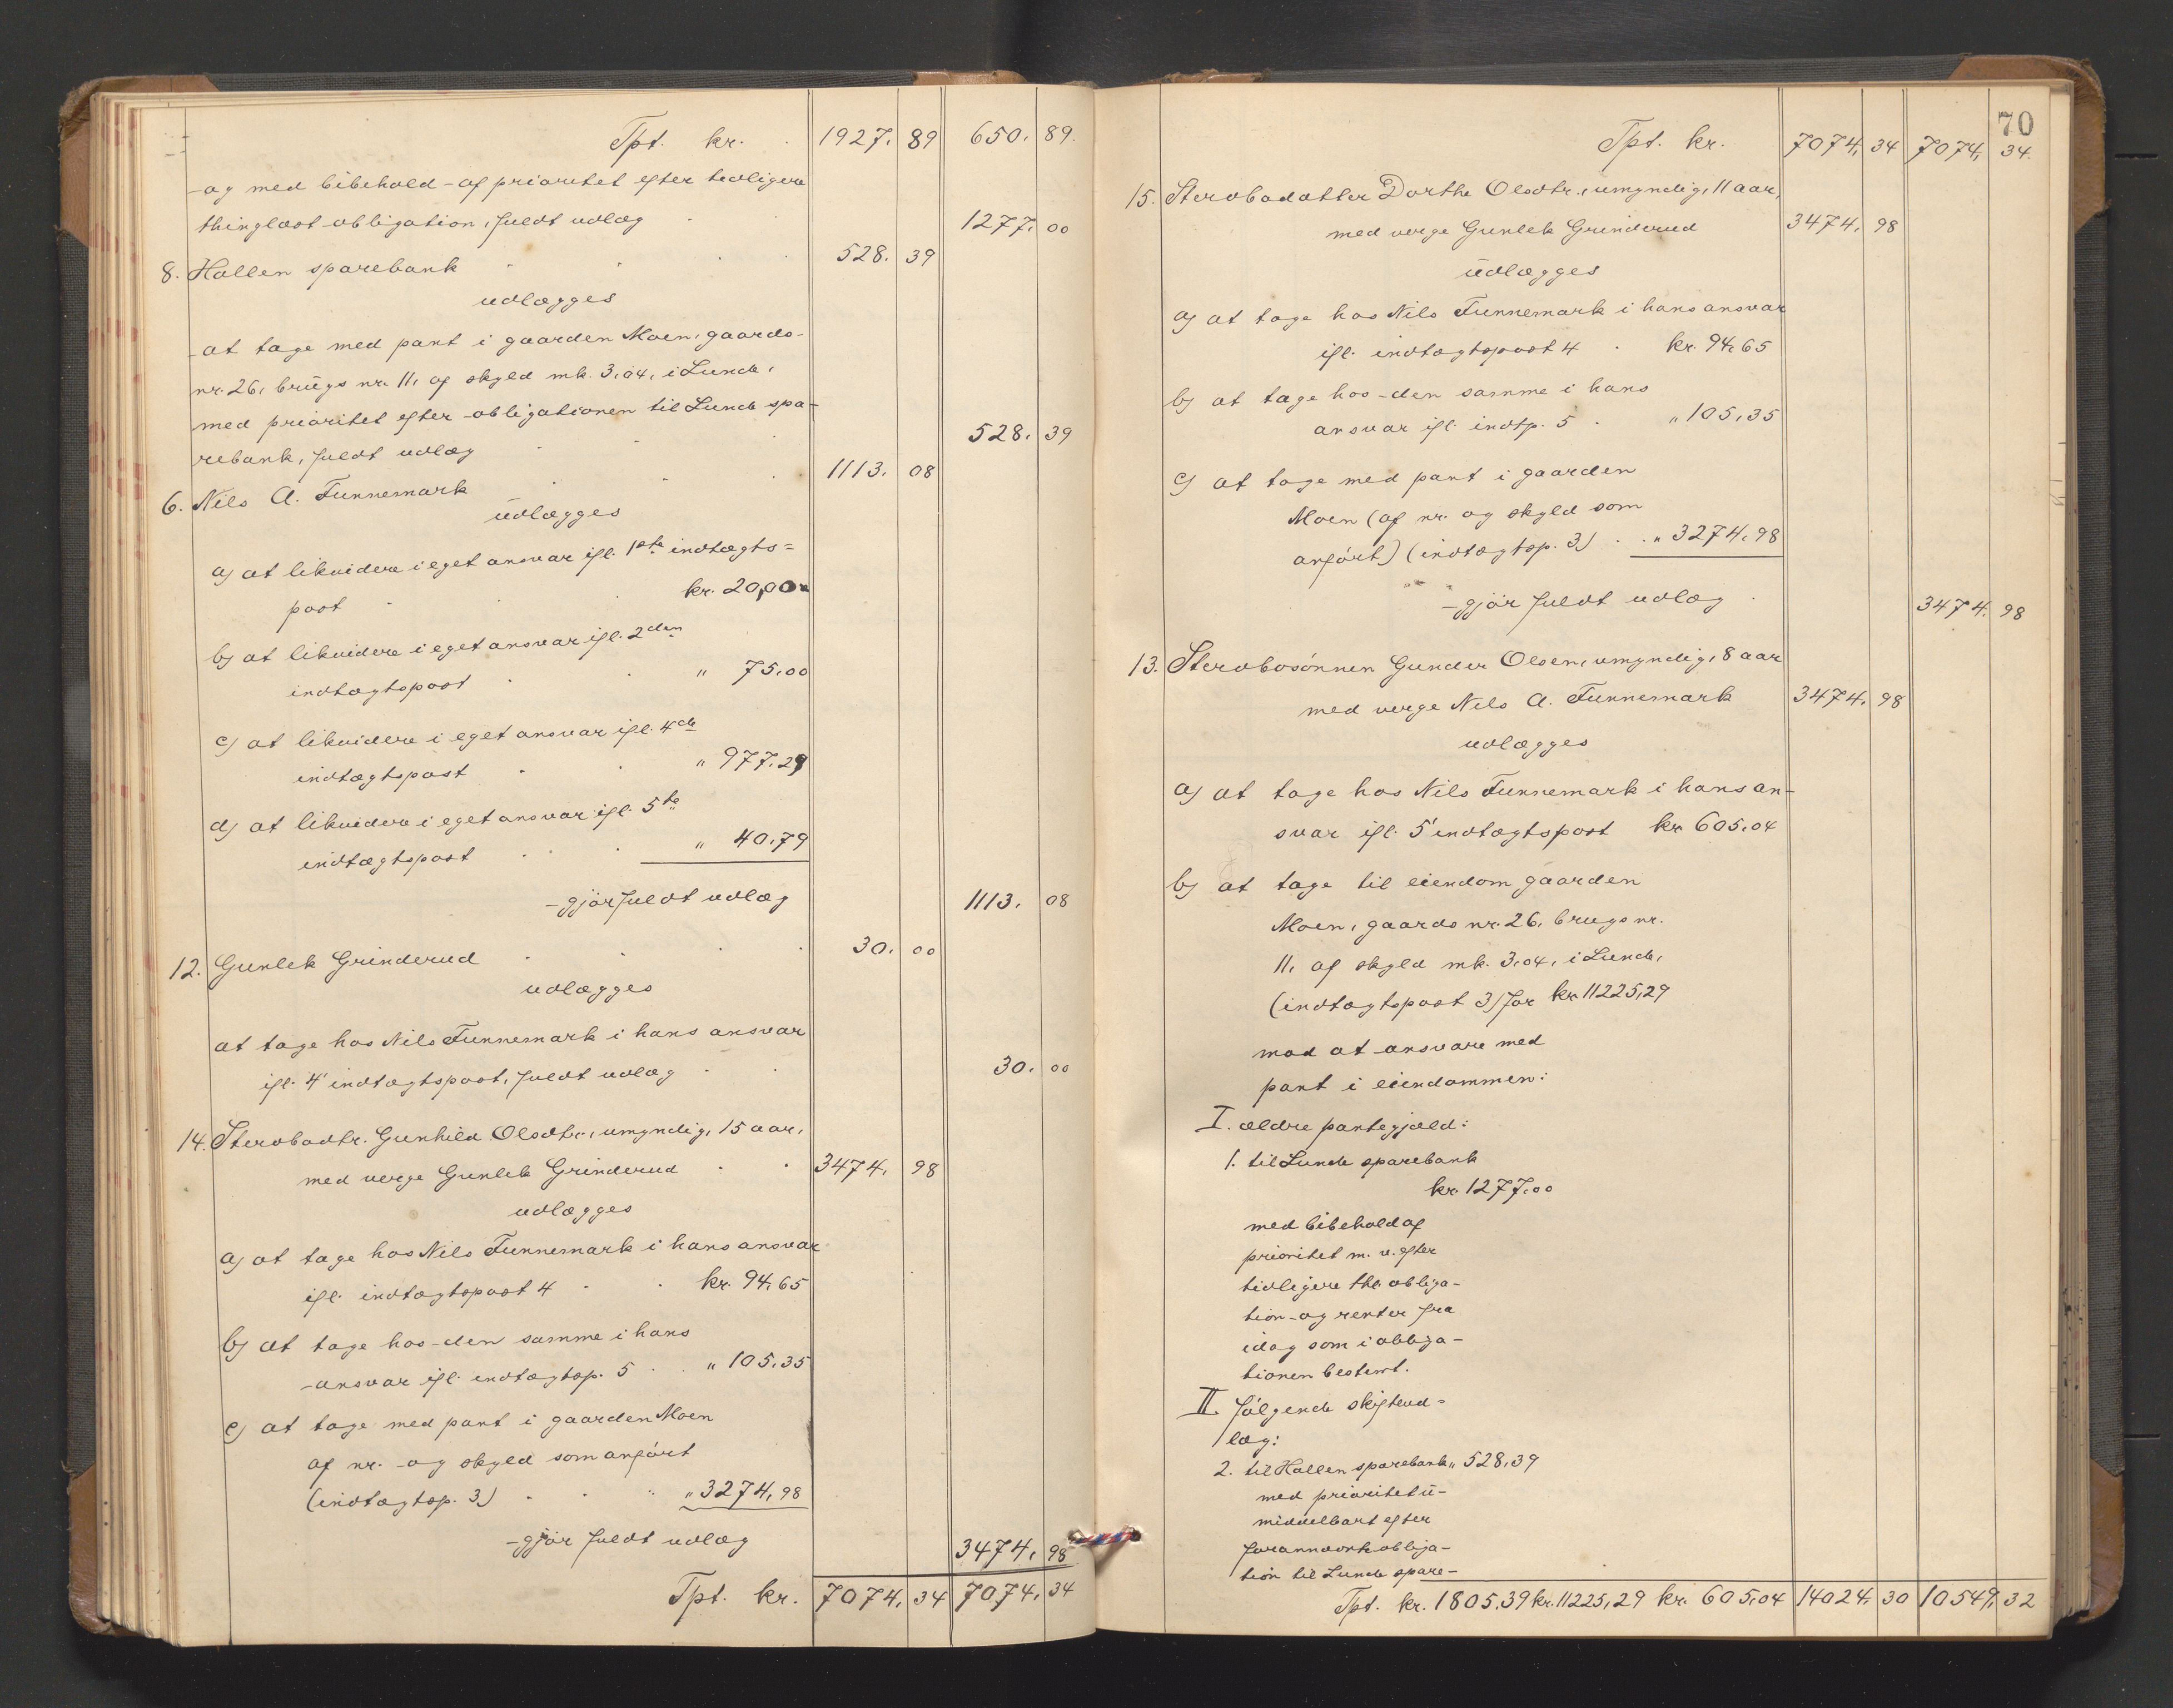 Tpt. kr. 1927. 89 650. 89.
og med bibehold af prioritet efter tidligere
thinglæst obligation, fuldt udlæg 1277. 00
8. Hollen sparebank 528. 39
udlægges
at tage med pant i gaarden Moen, gaards-
nr. 26, brugs nr. 11, af skyld mk. 3,04, i Lunde,
med prioritet efter obligationen til Lunde spa-
rebank, fuldt udlæg 528. 39
6. Nils A. Funnemark 1113. 08
udlægges
a) at likvidere i eget ansvar ifl. 1ste indtægts=
post kr. 20,00
b) at likvidere i eget ansvar ifl. 2den
indtægtspost " 75,00
c) at likvidere i eget ansvar ifl. 4de
indtægtspost " 977,29
d) at likvidere i eget ansvar ifl. 5te
indtægtspost " 40,79
gjør fuldt udlæg 1113. 08
12. Gunlek Grinderud 30. 00
udlægges
at tage hos Nils Funnemark i hans ansvar
ifl. 4' indtægtspost, fuldt udlæg 30. 00
14. Stervbodtr. Gunhild Olsdtr., umyndig, 15 aar,
med verge Gunlek Grinderud 3474. 98
udlægges
a) at tage hos Nils Funnemark i hans ansvar
ifl. indtægtspost 4 kr. 94,65
b) at tage hos den samme i hans
ansvar ifl. indtægtsp. 5 " 105,35
c) at tage med pant i gaarden Moen
af nr. og skyld som anført
(indtægtsp. 3) " 3274,98
gjør fuldt udlæg 3474. 98
Tpt. kr. 7074. 34 7074. 34
70
Tpt. kr. 7074. 34 7074. 34.
15. Stervbodatter Dorthe Olsdtr., umyndig, 11 aar,
med verge Gunlek Grinderud 3474. 98
udlægges
a) at tage hos Nils Funnemark i hans ansvar
ifl. indtægtspost 4 kr. 94,65
b) at tage hos den samme i hans
ansvar ifl. indtp. 5 " 105,35
c) at tage med pant i gaarden
Moen (af nr. og skyld som
anført) (indtægtsp. 3) " 3274,98
gjør fuldt udlæg 3474. 98
13. Stervbosønnen Gunder Olsen, umyndig, 8 aar
med verge Nils A. Funnemark 3474. 98
udlægges
a) at tage hos Nils Funnemark i hans an-
svar ifl. 5' indtægtspost kr. 605,04
b) at tage til eiendom gaarden
Moen, gaards nr. 26, brugs nr.
11, af skyld mk. 3,04, i Lunde,
(indtægtspost 3) for kr 11225,29
mod at ansvare med
pant i eiendommen:
I. ældre pantegjæld:
1. til Lunde sparebank
kr. 1277,00
med bibehold af
prioritet m. v. efter
tidligere thl. obliga-
tion og renter fra
idag som i obliga-
tionen bestemt.
II. følgende skifteud-
læg:
2. til Hollen sparebank " 528,39
med prioritet u-
middelbart efter
forannævnte obliga-
tion til Lunde spare-
Tpt. kr. 1805,39 kr. 11225,29 kr. 605,04 14024. 30 10549. 32